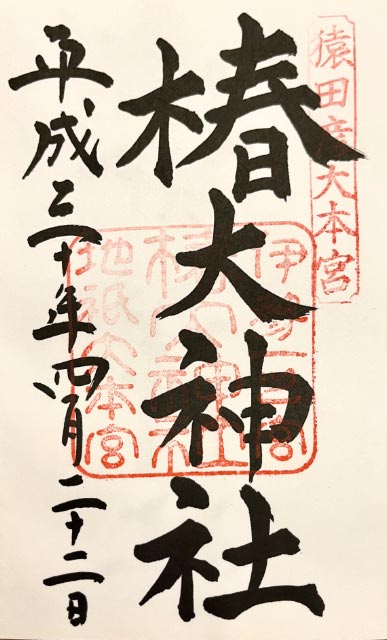 猿田彦大本宮
椿大神社
伊勢一宮
椿大神社
地祇大本宮
平成三十年四月二十二日